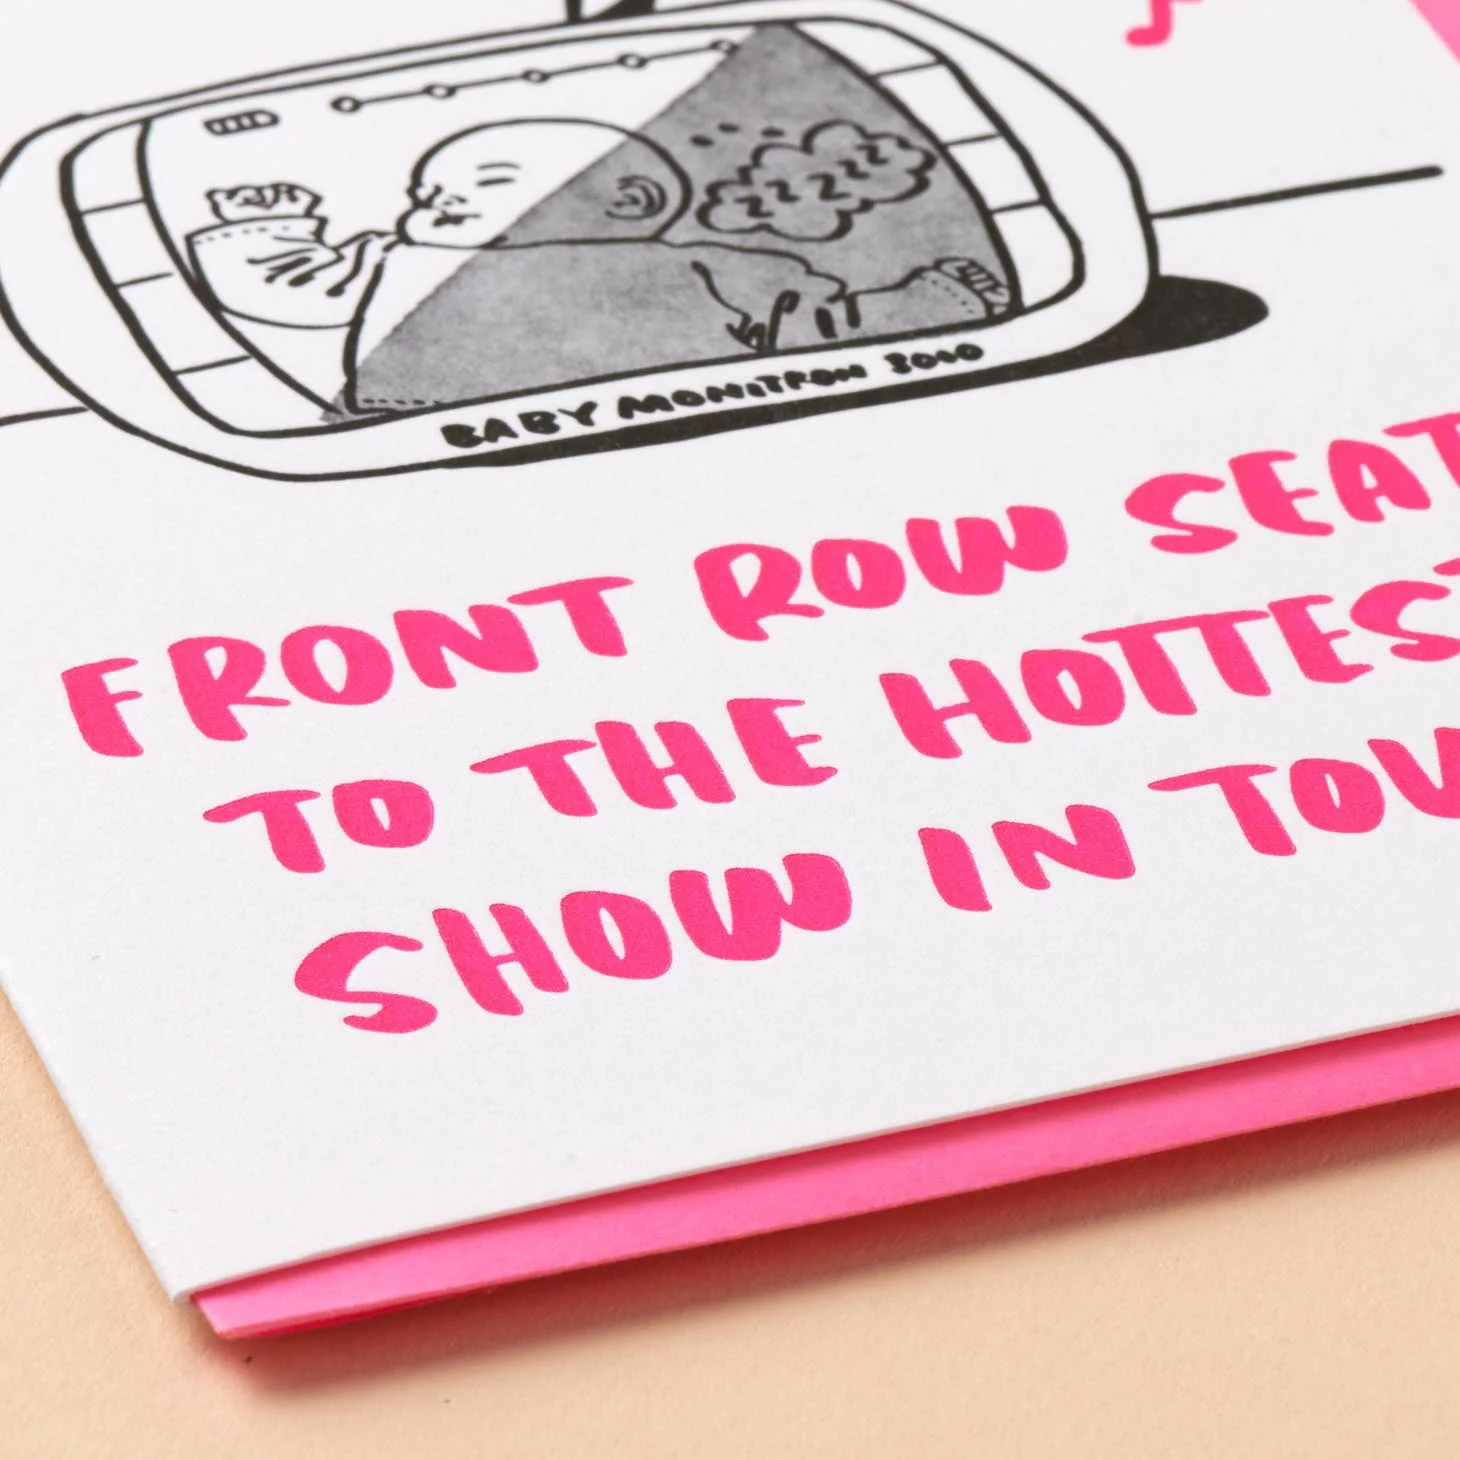 zzzzzz
BABY MONITRON 3000
FRONT ROW SEAT
TO THE HOTTEST
SHOW IN TOW